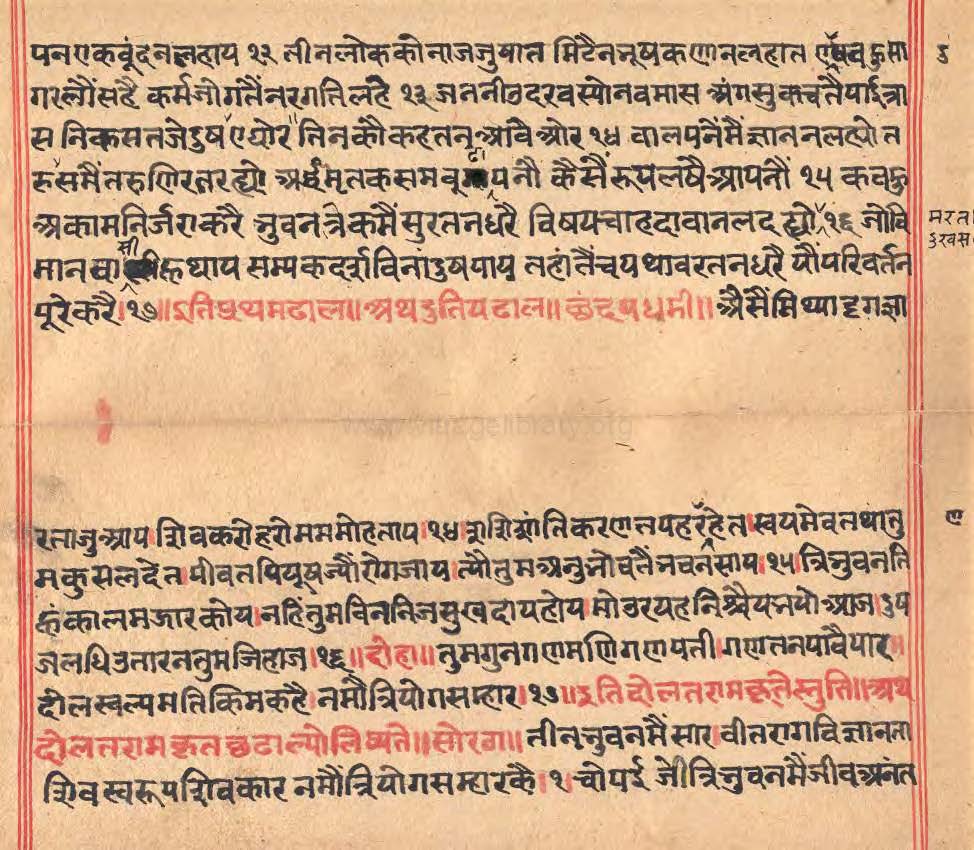 पनएकबूंदनलहाय १२ तीनलोककौनाजजुषात मिटैननूषकणानलहात एदुषबहुसा
गरलौंसहै कर्मजोगतैंनरगतिलहै १३ जननीउदरवस्योनवमास अंगसुकचतैंपाईत्रा
स निकसतजेदुष एघोर तिनकौकहतनआवैओर १४ वालपनैंमैंज्ञाननलह्यो त
रुसमैंतरुणिरतरह्यो अर्द्धमृतकसमवूढापनौ कैसैंरूपलषैआपनौं १५ कवहु
अकामनिर्जराकरै भुवनत्रकमैंसुरतनधरै विषयचाहदावानलदह्यो १६ जोवि
मरत
दुखस
मानवासीहूथाय सम्यकदर्शनविनादुषपाय तहांतैंचयथावरतनधरै यौंपरिवर्तन
पूरेकरै।१७॥इतिप्रथमढाल॥अथदुतियढाल॥छंदपधमी॥ ऐसैंमिथ्यादृगज्ञा
रताजुआप।शिवकरौहरोमममोहताप।१४।शशिशांतिकरणतपहरनहेत।स्वयमेवतथातु
मकुसलदेत।पीवतपियूषज्यौंरोगजाय।त्यौंतुमअनुभोवतैंभवनसाय।१५।त्रिभुवनति
हूंकालमजारकोय।नहिंतुमविननिजसुखदायहोय।मोउरयहनिश्चैयभयोआज।दुष
जलधिउतारनतुमजिहाज।१६॥दोहा॥तुमगुनगणमणिगणपती।गणतनपावैपार॥
दौलस्वल्पमतिकिमकहै।नमौंत्रियोगसम्हार।१७॥इतिदौलतरामकृतस्तुति॥अथ
दौलतरामकृतछढाल्योलिष्यते॥सोरठा॥तीनभुवनमैंसार।वीतरागविज्ञानता
शिवस्वरूपशिवकार नमौंत्रियोगसम्हारकै।१।चौपई जेत्रिभुवनमैंजीवअनंत